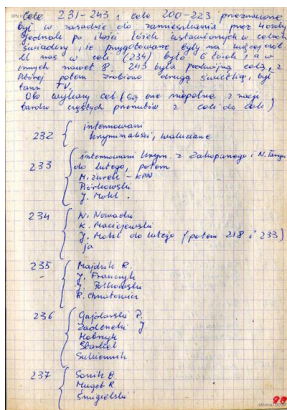 Cele 231-243 i cele 200-223 przeznaczone
były w zasadzie do zamieszkania przez 4 osoby
Jednak ilości łóżek ustawionych w celach
świadczy, że przygotowane były na więcej osób
U nas w celi (234) było 6 łóżek, a w
innych nawet 8. 243 była podwójną celą, z
której potem zrobiono drugą świetlicę, był
tam TV.
Oto wykazy cel (są one niepełne z racji
bardzo częstych przenosin z celi do celi)
232 { internowani
kryminaliści,
233 { internowani z Zakopanego i N. Targu
do lutego, potem
M. - KPN
Piórkowski
J. Mohl.
234 { N. Nowacki
K. Maciejewski
J. Mohl do lutego (potem 218 i 233)
ja
235 { Majdzik R.
J. Franczyk
J. Polkowski
R.
236 { Gajdarski P.
J
Skarbek
Sukiennik
237 { Sonik B.
Huget R.
Śmigielski